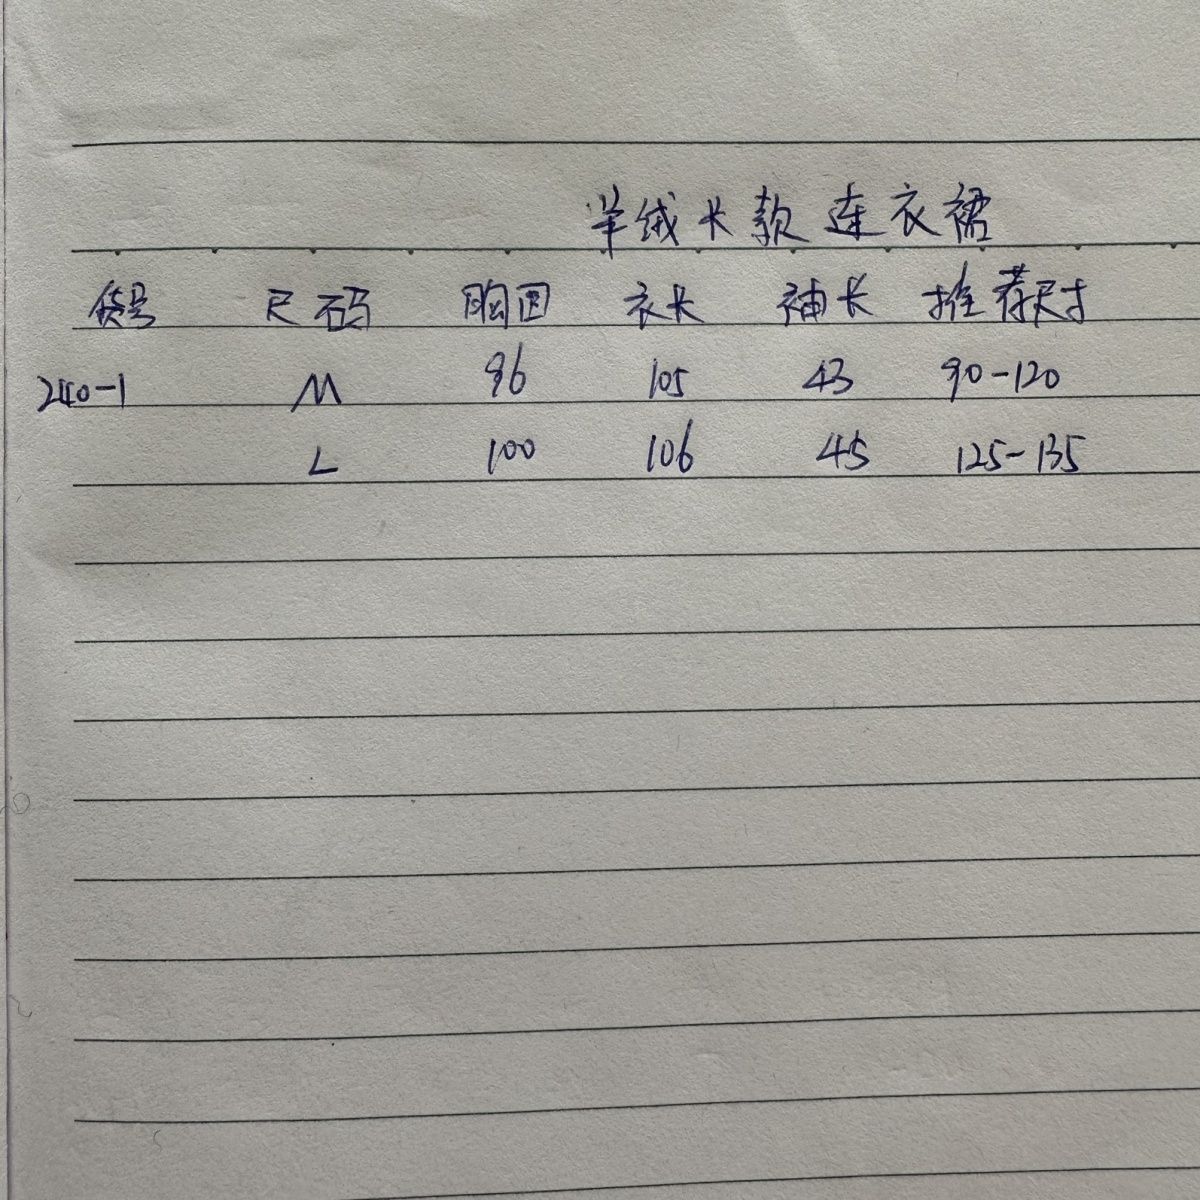 羊绒长款连衣裙
货号 尺码 胸围 衣长 袖长 推荐尺寸
240-1 M 96 105 43 90-120
L 100 106 45 125-135